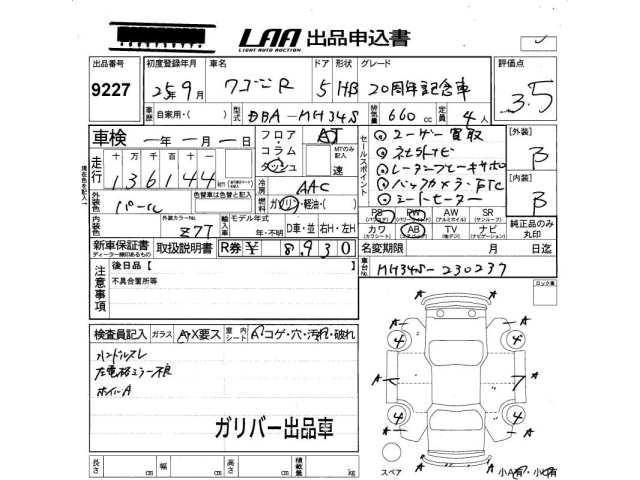 LAA 出品申込書
LIGHT AUTO AUCTION
出品番号 初度登録年月 車名 ドア 形状 グレード 評価点
9227 25年9月 ワゴンR 5 HB 20周年記念車 3.5
車歴 自家用・( ) 型式 DBA-MH34S 排気量 660 cc 定員 4人
車検 一年 一月 一日 フロア・コラム・ダッシュ AT セールスポイント ユーザー買取 [外装]
走行 十万 万 千 百 十 MTのみ記入 速 社外ナビ B
136144 km レーダーブレーキサポ
現在色を記入→ 冷房 AAC バックカメラ・ETC [内装]
外装色 パール 色替車は色替と記入 燃料 ガソリン・軽油・( ) シートヒーター B
内装色 外装カラーNo. Z7T 輸入車 モデル年式 年・不明 D車・並 右H・左H
PS PW AW SR
(パワステ) (パワーウインド) (アルミホイル) (サンルーフ)
カワ AB TV ナビ
(カワシート) (エアバッグ) (地デジ) (ナビゲーション)
純正品のみ丸印
新車保証書 取扱説明書 R券 ¥ 8,930 名変期限 月 日迄
ディーラー捺印あるもの
車台No. MH34S-230237
注意事項 後日品【
不具合箇所等
ロック車
検査員記入 ガラス A・X要ス 室内シート A・コゲ・穴・汚れ・破れ
ハンドルスレ
左電格ミラー不良
ホイルA
ガリバー出品車
A A A
4 4
A 7
4 4
A A
A
長さ cm 幅 cm 高さ cm 積載量 kg
スペア 小A有・小U有